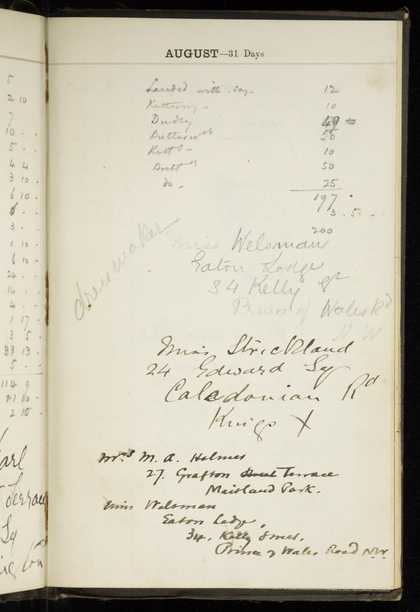 5
2 10
7
10 -
5 -
4 4
3 10
6 10
6 -
3 -
1 10
6 10
24 -
14 -
4 -
1 17
3 5
33 13
5 -
114 9
2 10
AUGUST—31 Days
Landed with 12
Kettering - 10
Dudley 49 =
Butterw 20
10
Brett 50
do. 25
197 .
3 . 5 .
200
dressmaker
Miss Welsman
Eaton Lodge
34 Kelly
Prince of Wales Rd
N W
Miss Strickland
24 Edward Sq
Caledonian Rd
Kings X
Mrs M. A. Holmes
27. Grafton Terrace
Maitland Park.
Miss Welsman
Eaton Lodge,
34. Kelly Street.
Prince of Wales Road N.W.